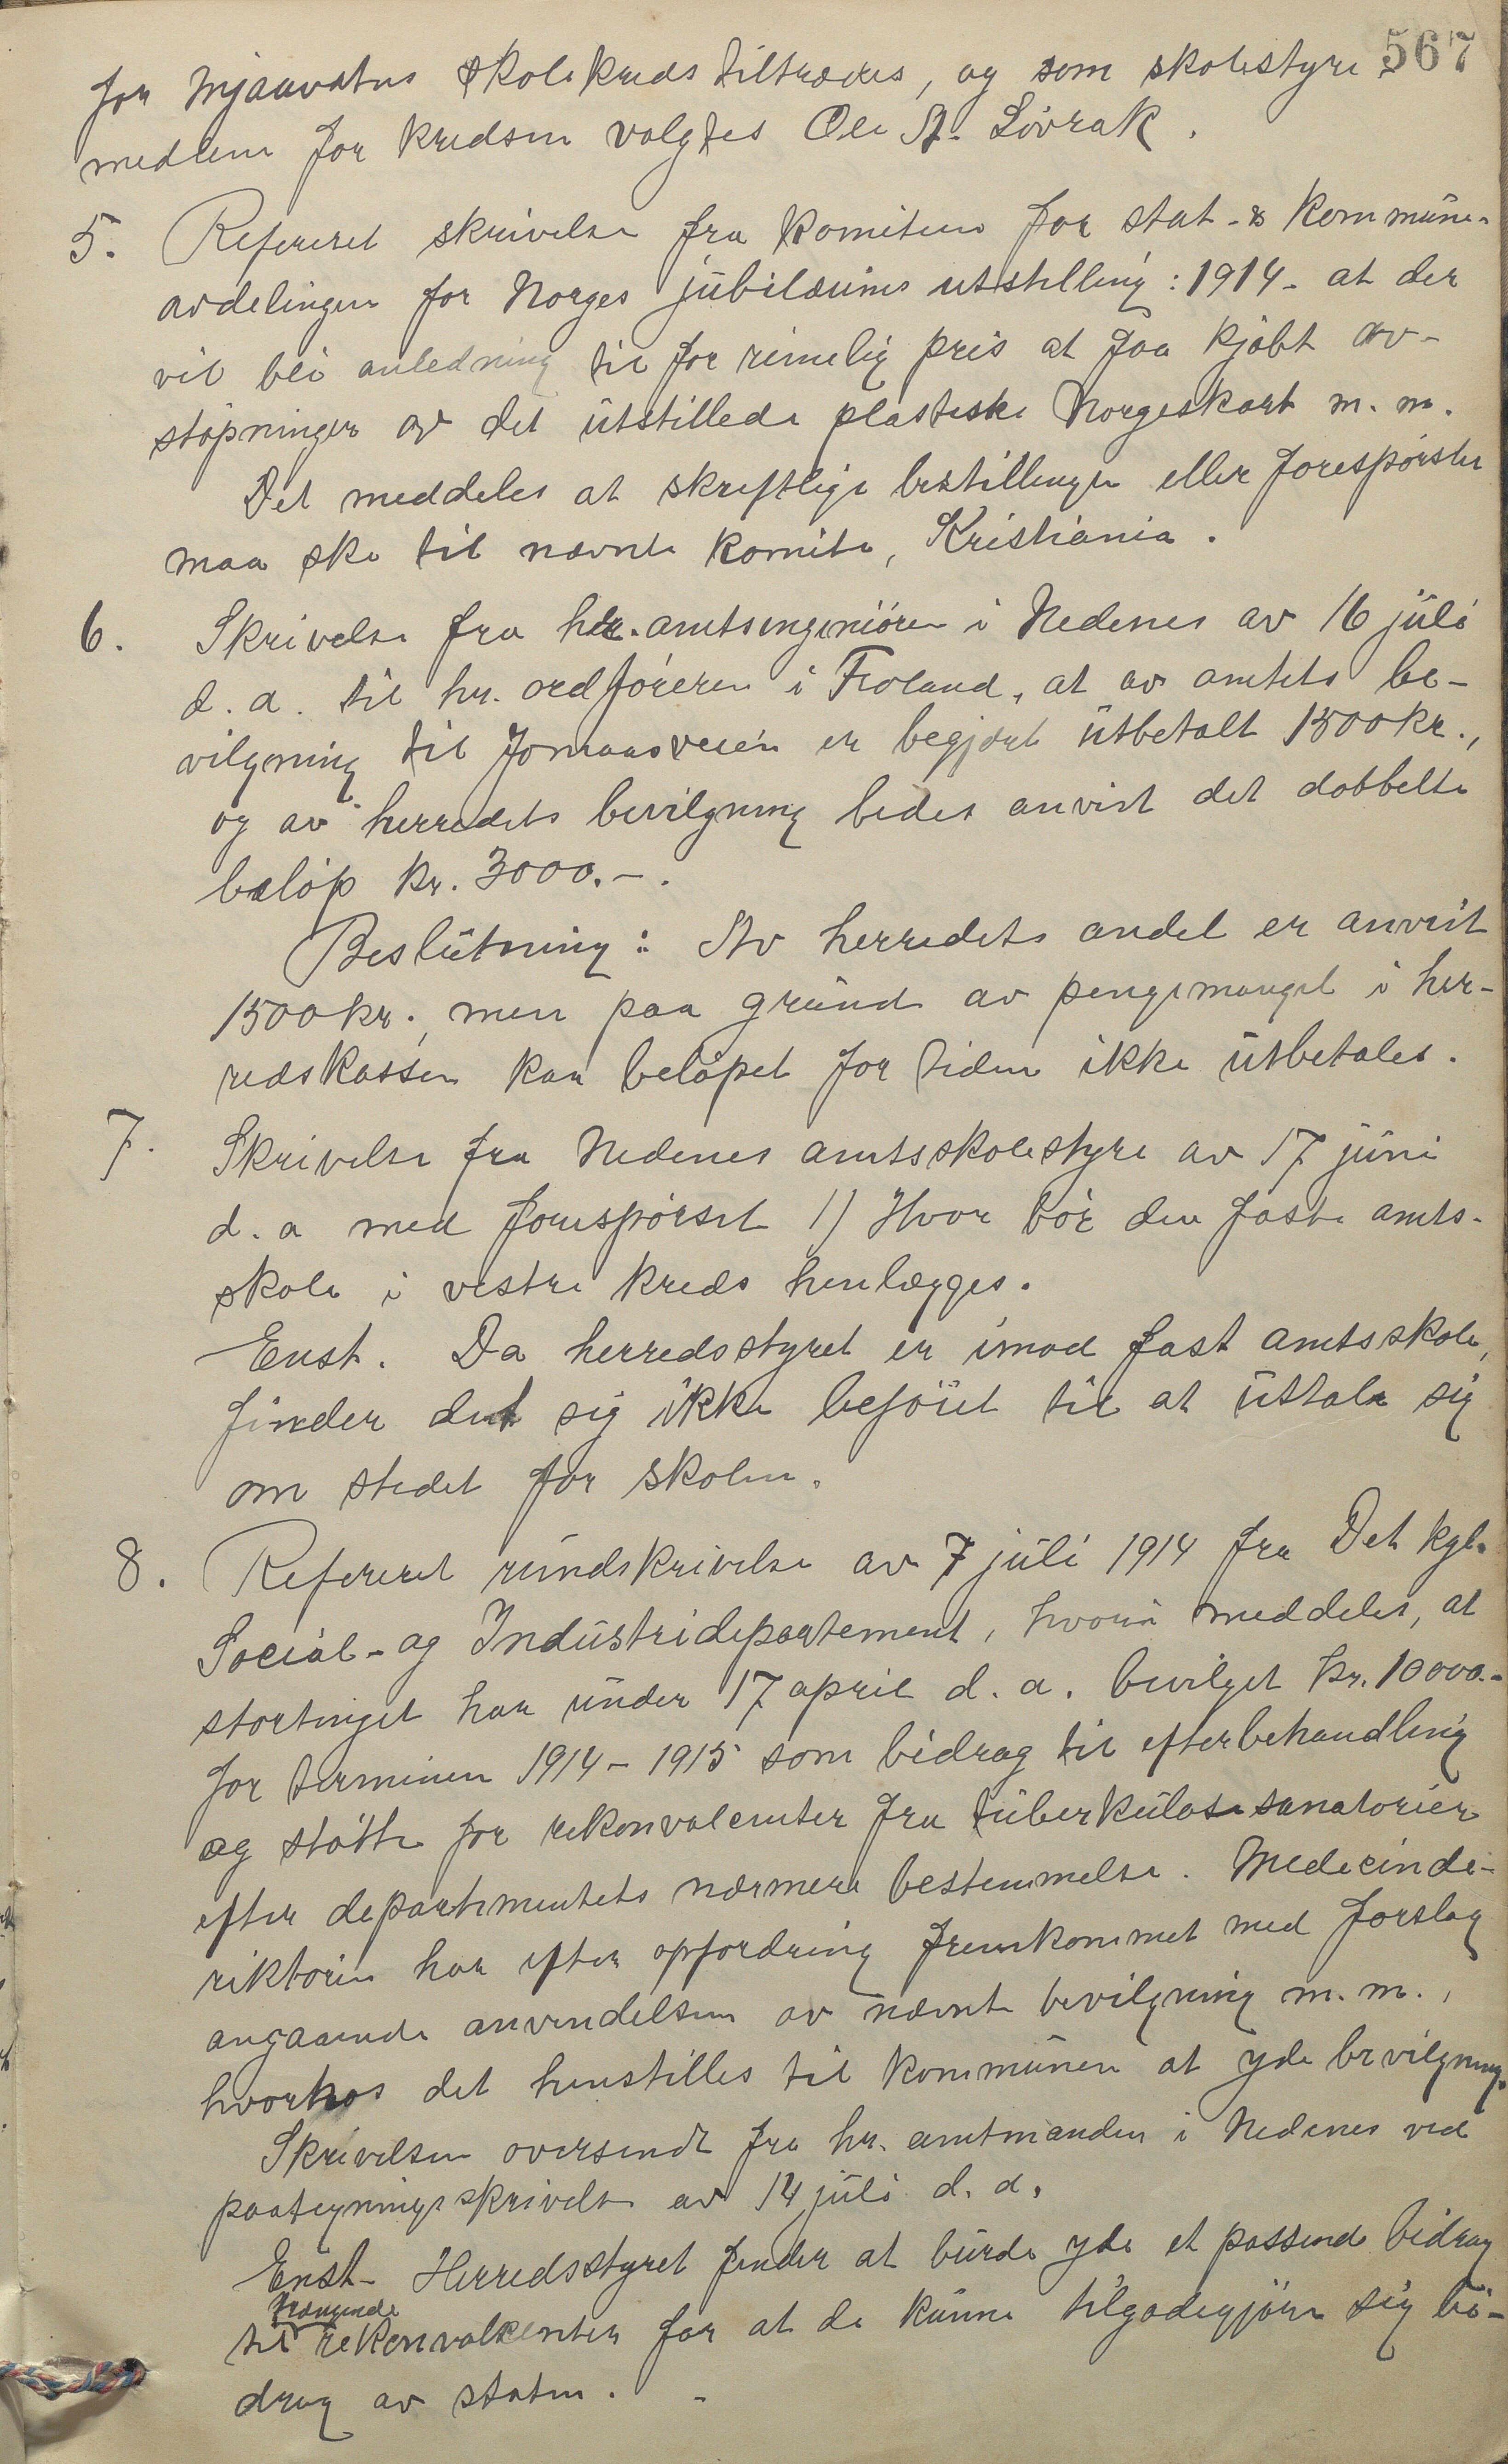 567
for Mjaavatns skolekreds tiltrædes, og som skolestyre
medlem for kredsen valgtes Ole A. Løvrak.
5. Refereret skrivelse fra komiteen for stat- & kommune-
avdelingen for Norges jubilæums utstilling: 1914 - at der
vil bli anledning til for rimelig pris at faa kjøbt av-
støpninger av det utstillede plastiske Norgeskart m.m.
Det meddeles at skriftlige bestillinger eller forespørsler
maa ske til nævnte komite, Kristiania.
6. Skrivelse fra hr. amtsingeniøren i Nedenes av 16 juli
d.a. til hr. ordføreren i Froland, at av amtets be-
vilgning til Jomaasveien er begjært utbetalt 1500 kr.,
og av herredets bevilgning bedes anvist det dobbelte
beløp kr. 3000.-.
Beslutning: Av herredets andel er anvist
1500 kr., men paa grund av pengemangel i her-
redskassen kan beløpet for tiden ikke utbetales.
7. Skrivelse fra Nedenes amtsskolestyre av 17 juni
d.a med forespørsel 1) Hvor bør den faste amts-
skole i vestre kreds henlægges.
Enst. Da herredsstyret er imod fast amtsskole,
finder det sig ikke beføiet til at uttale sig
om stedet for skolen.
8. Refereret rundskrivelse av 7 juli 1914 fra Det kgl.
Social- og Industridepartement, hvori meddeles, at
stortinget har under 17 april d.a. bevilget kr. 10000.-
for terminen 1914-1915 som bidrag til efterbehandling
og støtte for rekonvalenter fra tuberkulosesanatorier
efter departementets nærmere bestemmelse. Medicindi-
rektøren har efter opfordring fremkommet med forslag
angaaende anvendelsen av nævnte bevilgning m.m.,
hvorhos det henstilles til kommunen at yde bevilgning.
Skrivelsen oversendt fra hr. amtmanden i Nedenes ved
paategningsskrivelse av 14 juli d.a.
Enst- Herredsstyret finder at burde yde et passende bidrag
trængende
til rekonvalenter for at de kunne tilgodegjøre sig bi-
drag av staten. -